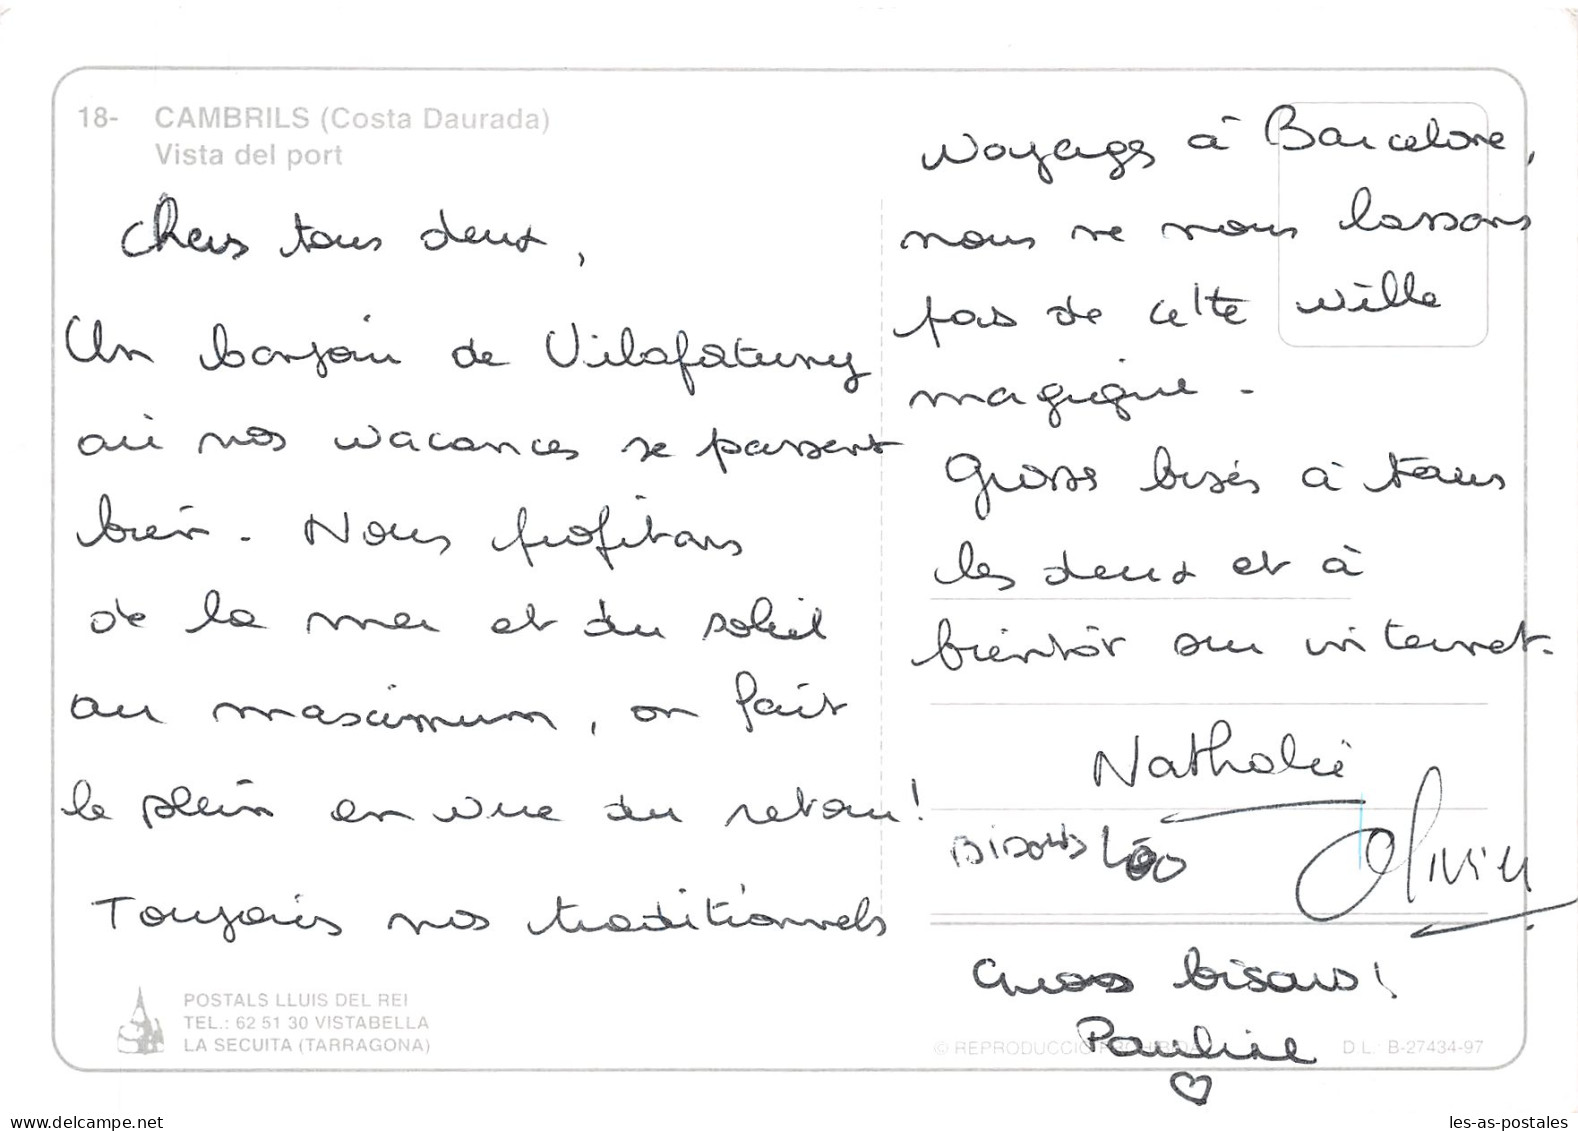 18- CAMBRILS (Costa Daurada)
Vista del port
Chers tous deux,
Un bonjour de Vilafortuny
où nos vacances se passent
bien. Nous profitons
de la mer et du soleil
au maximum, on fait
le plein en vue du retour!
Toujours nos traditionnels
voyages à Barcelone,
nous ne nous lassons
pas de cette ville
magique.
Grosses bises à tous
les deux et à
bientôt sur internet.
Nathalie
Bisous Léo
Olivier
Gros bisous!
Pauline
♡
POSTALS LLUIS DEL REI
TEL.: 62 51 30 VISTABELLA
LA SECUITA (TARRAGONA)
© REPRODUCCIÓ PROHIBIDA
D.L.: B-27434-97
delcampe.net
les-as-postales